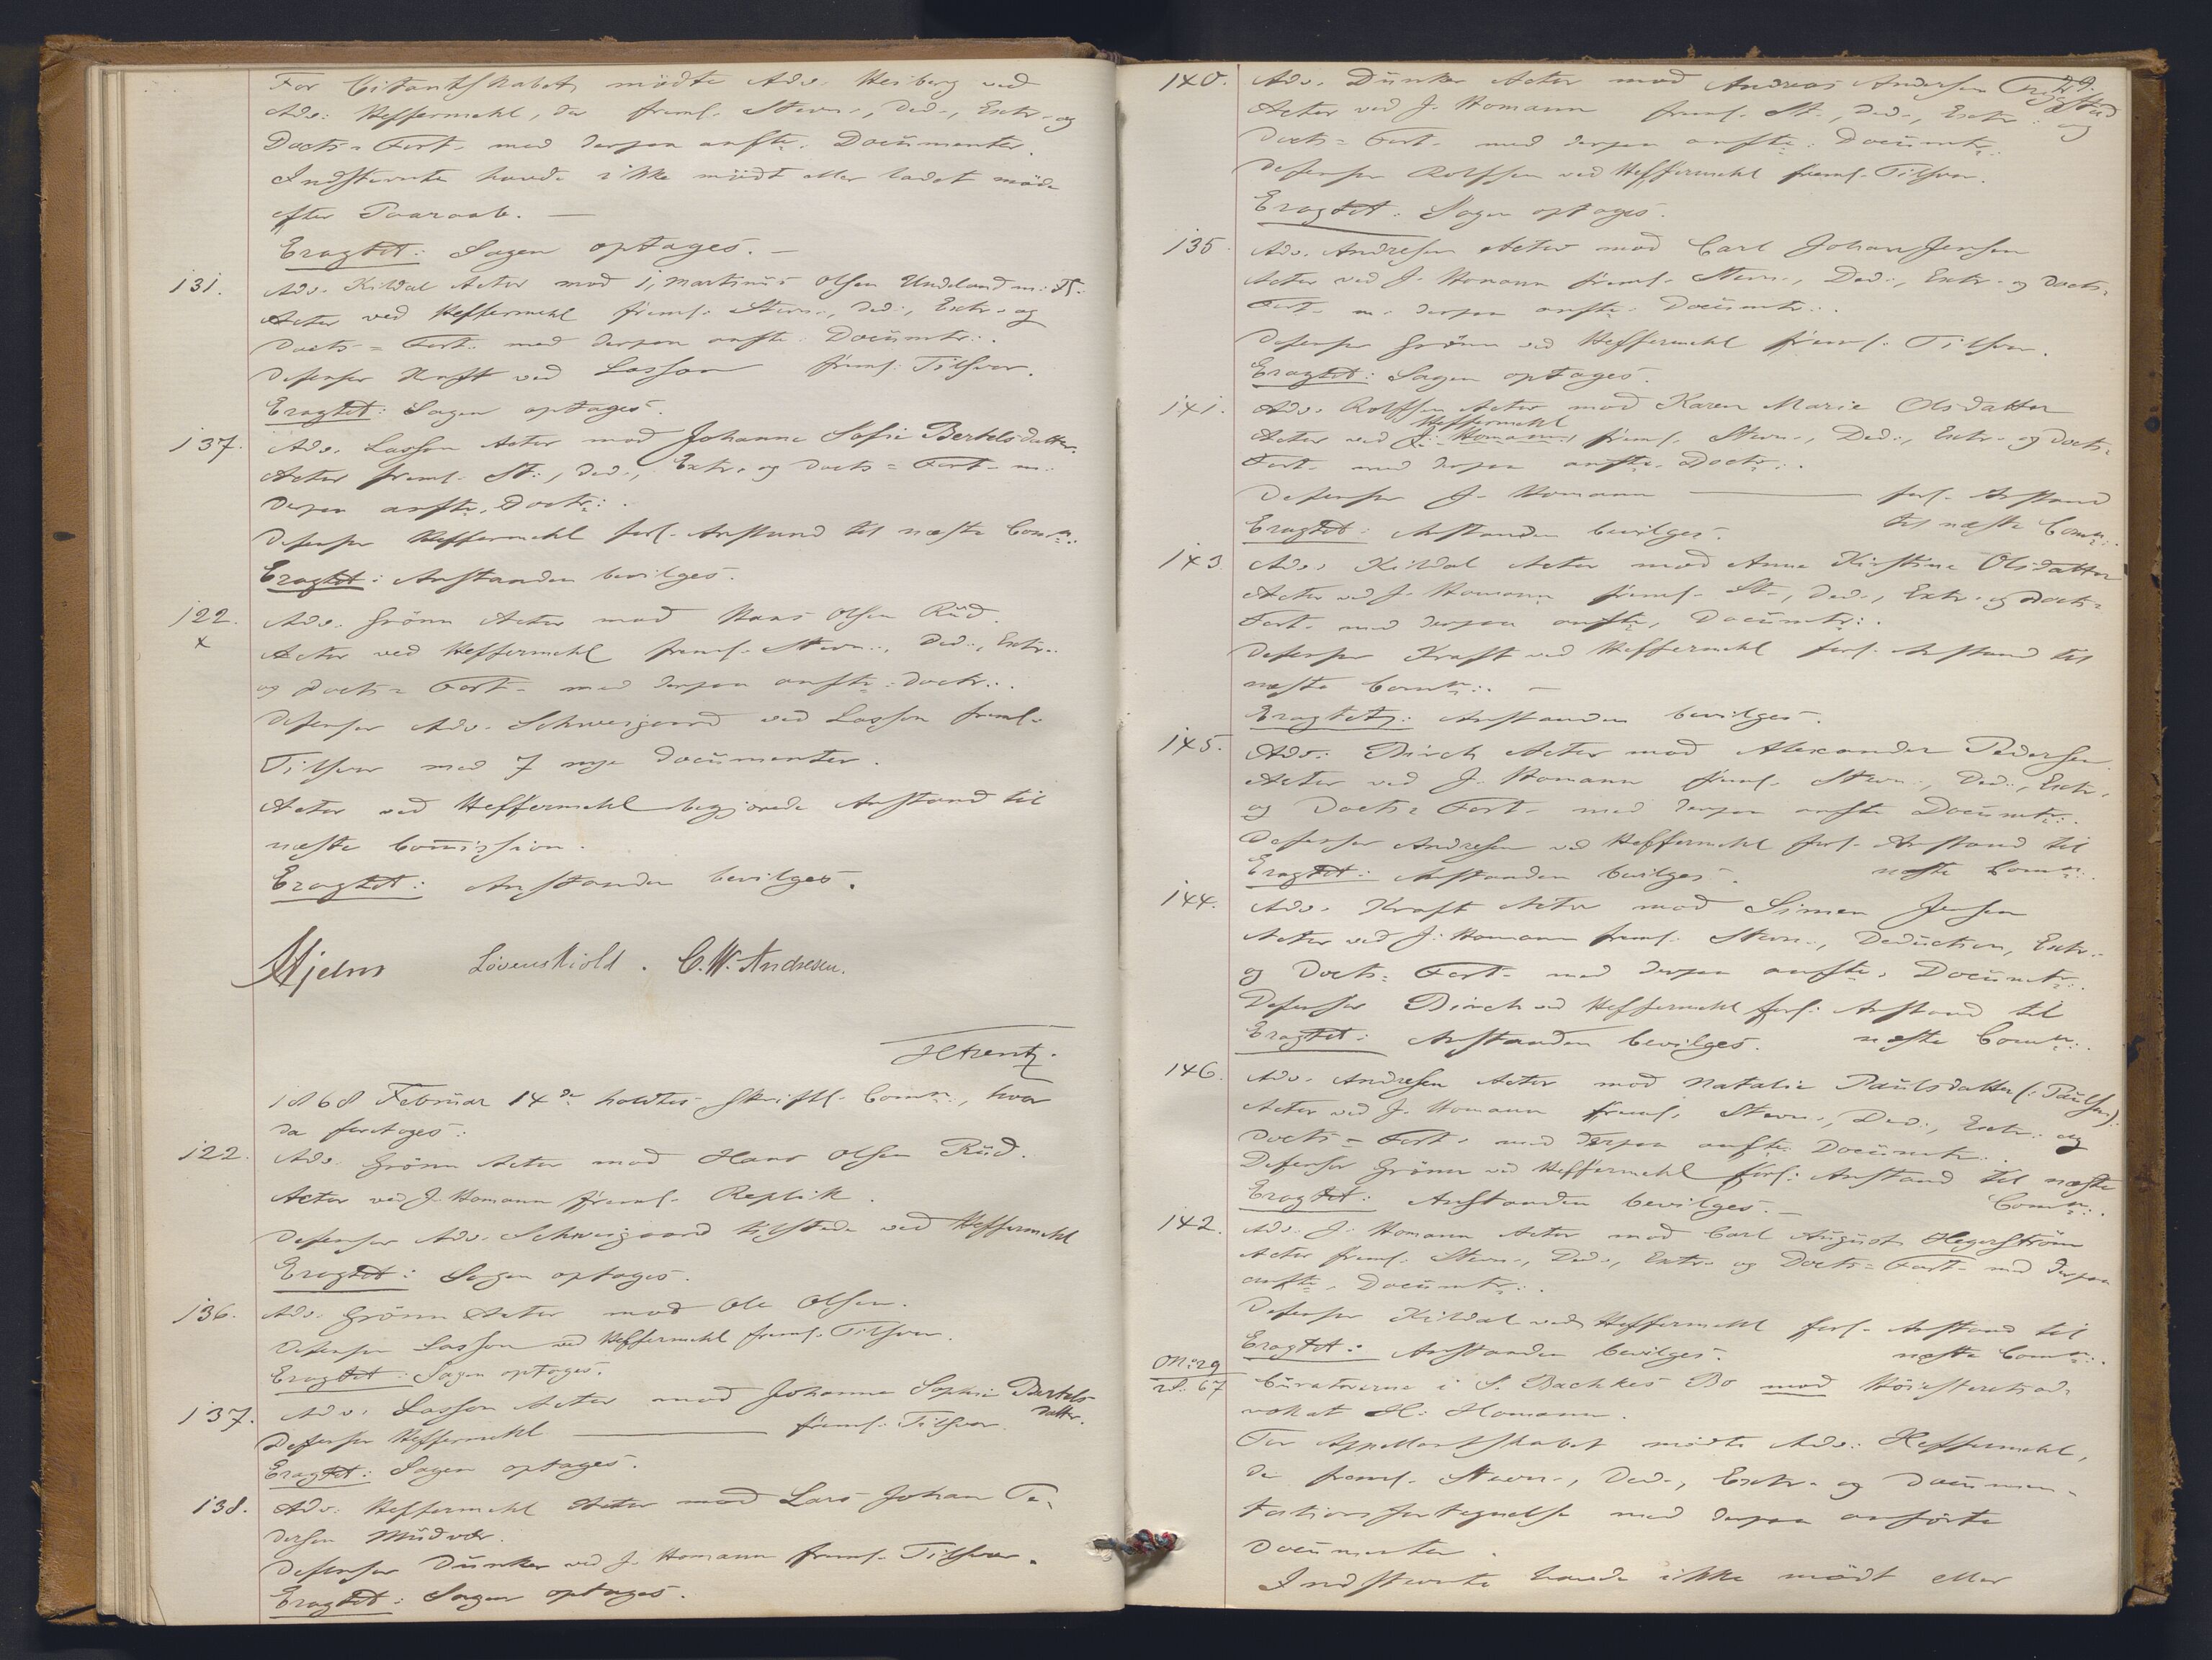 For Citantskabet mödte Adv. Heiberg ved
Adv. Heffermehl, der freml. Stevn., Ded., Extr. og
Docts= Fort. med derpaa anfte. Documenter.
Indstevnte havde ikke mödt eller ladet möde
efter Paaraab. —
Eragtet: Sagen optages. —
131. Adv. Kildal Actor mod 1, Martinus Olsen Undeland m. Fl.
Actor ved Heffermehl freml. Stevn., Ded., Extr. og
Docts= Fort. med derpaa anfte. Documtr:.
Defensor Kraft ved Lasson freml. Tilsvar.
Eragtet: Sagen optages.
137. Adv. Lasson Actor mod Johanne Sofie Bertelsdatter.
Actor freml. St., Ded., Extr. og Docts= Fort. m.
derpaa anfte. Doctr:.
Defensor Heffermehl forl. Anstand til næste Comn:.
Eragtet: Anstanden bevilges.
122. Adv. Grönn Actor mod Hans Olsen Rüd.
x
Actor ved Heffermehl freml. Stevn., Ded., Extr.
og Docts= Fort. med derpaa anfte. Doctr:.
Defensor Adv. Schweigaard ved Lasson freml.
Tilsvar med 7 nye Documenter.
Actor ved Heffermehl begjærede Anstand til
næste Commission.
Eragtet: Anstanden bevilges.
Hjelm Lövenskiold. C. W. Andresen.
1868 Februar 14de holdtes skriftl. Comn., hvor
da foretoges:
122. Adv. Grönn Actor mod Hans Olsen Rüd.
Actor ved J. Homann freml. Replik.
Defensor Adv. Schweigaard tilstede ved Heffermehl
Eragtet: Sagen optages.
136. Adv. Grönn Actor mod Ole Olsen.
Defensor Lasson ved Heffermehl freml. Tilsvar.
Eragtet: Sagen optages.
137. Adv. Lasson Actor mod Johanne Sophie Bertels-
datter.
Defensor Heffermehl — freml. Tilsvar.
Eragtet: Sagen optages.
138. Adv. Heffermehl Actor mod Lars Johan Pe-
dersen
Defensor Dunker ved J. Homann freml. Tilsvar.
Eragtet: Sagen optages.
29.
140. Adv. Dunker Actor mod Andreas Andersen
Actor ved J. Homann freml. St., Ded., Extr. og
Docts= Fort. med derpaa anfte. Documtr:.
Defensor Rolfsen ved Heffermehl freml. Tilsvar.
Eragtet: Sagen optages.
135. Adv. Andresen Actor mod Carl Johan Jensen
Actor ved J. Homann freml. Stevn., Ded., Extr. og Docts=
Fort. m. derpaa anfte. Documtr:.
Defensor Grönn ved Heffermehl freml. Tilsvar.
Eragtet: Sagen optages.
141. Adv. Rolfsen Actor mod Karen Marie Olsdatter
Heffermehl
Actor ved J. Homann freml. Stevn., Ded., Extr. og Docts=
Fort. med derpaa anfte. Doctr:.
Defensor J. Homann — forl. Anstand
til næste Comn:.
Eragtet: Anstanden bevilges.
143. Adv. Kildal Actor mod Anne Kirstine Olsdatter
Actor ved J. Homann freml. St., Ded., Extr. og Docts=
Fort. med derpaa anfte. Documtr:.
Defensor Kraft ved Heffermehl forl. Anstand til
næste Comn:. —
Eragtet: Anstanden bevilges.
145. Adv. Birch Actor mod Alexander Pedersen
Actor ved J. Homann freml. Stevn., Ded., Extr.
og Docts= Fort. med derpaa anfte Documtr:.
Defensor Andresen ved Heffermehl forl. Anstand til
næste Comn:.
Eragtet: Anstanden bevilges.
144. Adv. Kraft Actor mod Simen Jensen
Actor ved J. Homann freml. Stevn., Deduction, Extr.
og Docts= Fort. med derpaa anfte. Documtr:.
Defensor Birch ved Heffermehl forl. Anstand til
næste Comn:.
Eragtet: Anstanden bevilges.
146. Adv. Andresen Actor mod Natalie Paulsdatter (: Paulsen).
Actor ved J. Homann freml. Stevn., Ded., Extr. og
Docts= Fort. med derpaa anfte. Documtr.
Defensor Grönn ved Heffermehl forl. Anstand til næste
Comn:.
Eragtet: Anstanden bevilges. —
142. Adv. J. Homann Actor mod Carl August Hegerström
Actor freml. Stevn., Ded., Extr. og Docts= Fort. med derpaa
anfte. Documtr:.
Defensor Kildal ved Heffermehl forl. Anstand til
næste Comn:.
Eragtet: Anstanden bevilges.
No: 29 Curatorerne i S. Bachkes Bo mod Höiesteretsad-
67 vokat H. Homann.
For Appellantskabet mödte Adv. Heffermehl,
der freml. Stevn., Ded., Extr. og Documen-
tationsfortegnelse med derpaa anförte
Documenter.
Indstevnte havde ikke mödt eller